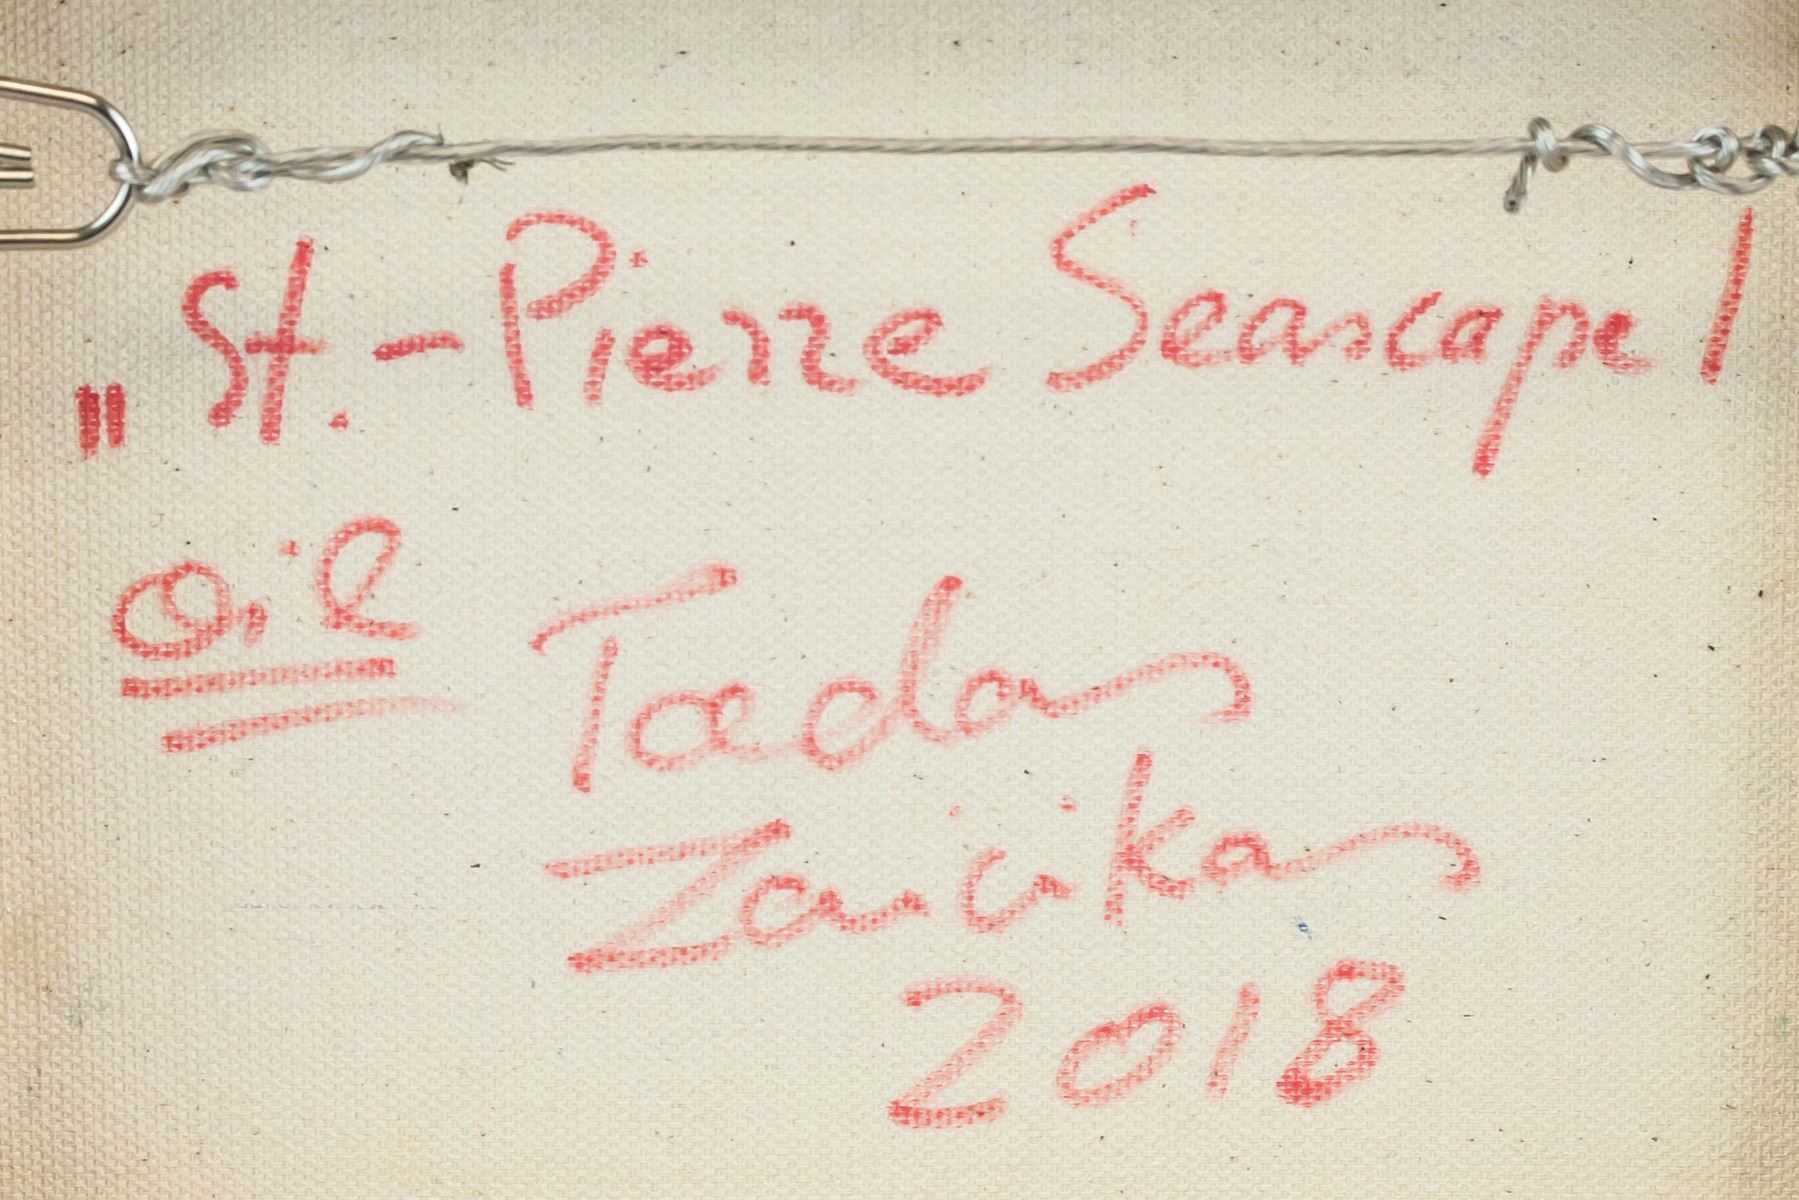 „St.-Pierre Seascape I
Oil
Tadas
Zaicikas
2018